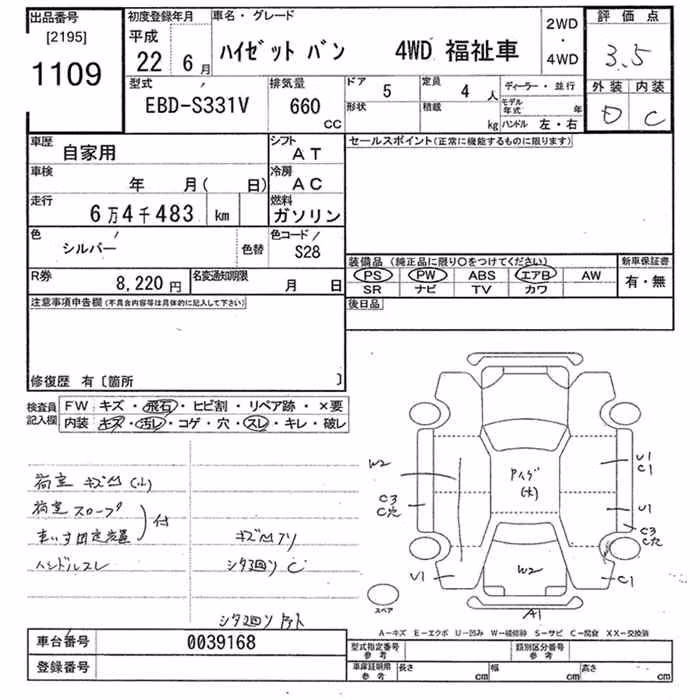 出品番号
[2195]
1109
初度登録年月
平成
22 6 月
車名・グレード
ハイゼット バン 4WD 福祉車
2WD
・
4WD
評価点
3.5
型式
EBD-S331V
排気量
660
CC
ドア 5
定員 4 人
形状
積載 kg
ディーラー・並行
モデル年式 年
ハンドル 左・右
外装 内装
D C
車歴
自家用
シフト
AT
セールスポイント(正常に機能するものに限ります)
車検
年 月( 日)
冷房
AC
走行
6万4千483 km
燃料
ガソリン
色
シルバー
色替
色コード
S28
装備品(純正品に限り○をつけてください)
PS PW ABS エアB AW
SR ナビ TV カワ
新車保証書
有・無
R券
8,220 円
名変通知期限
月 日
後日品
注意事項申告欄(不具合内容等は具体的に記入して下さい)
修復歴 有〔箇所 〕
検査員記入欄
FW キズ・飛石・ヒビ割・リペア跡・×要
内装 キズ・汚レ・コゲ・穴・スレ・キレ・破レ
荷室 キズ凹(小)
荷室スロープ
車いす固定装置
付
ハンドルスレ
キズ凹アリ
シタ廻り C
W2
C3
C穴
U1
C1
U1
C3
C穴
U1
W2
C1
A1
スペア
A−キズ E−エクボ U−凹み W−補修跡 S−サビ C−腐食 XX−交換済
車台番号
0039168
登録番号
型式指定番号
参考
類別区分番号
参考
車庫証明用
参考
長さ cm
幅 cm
高さ cm